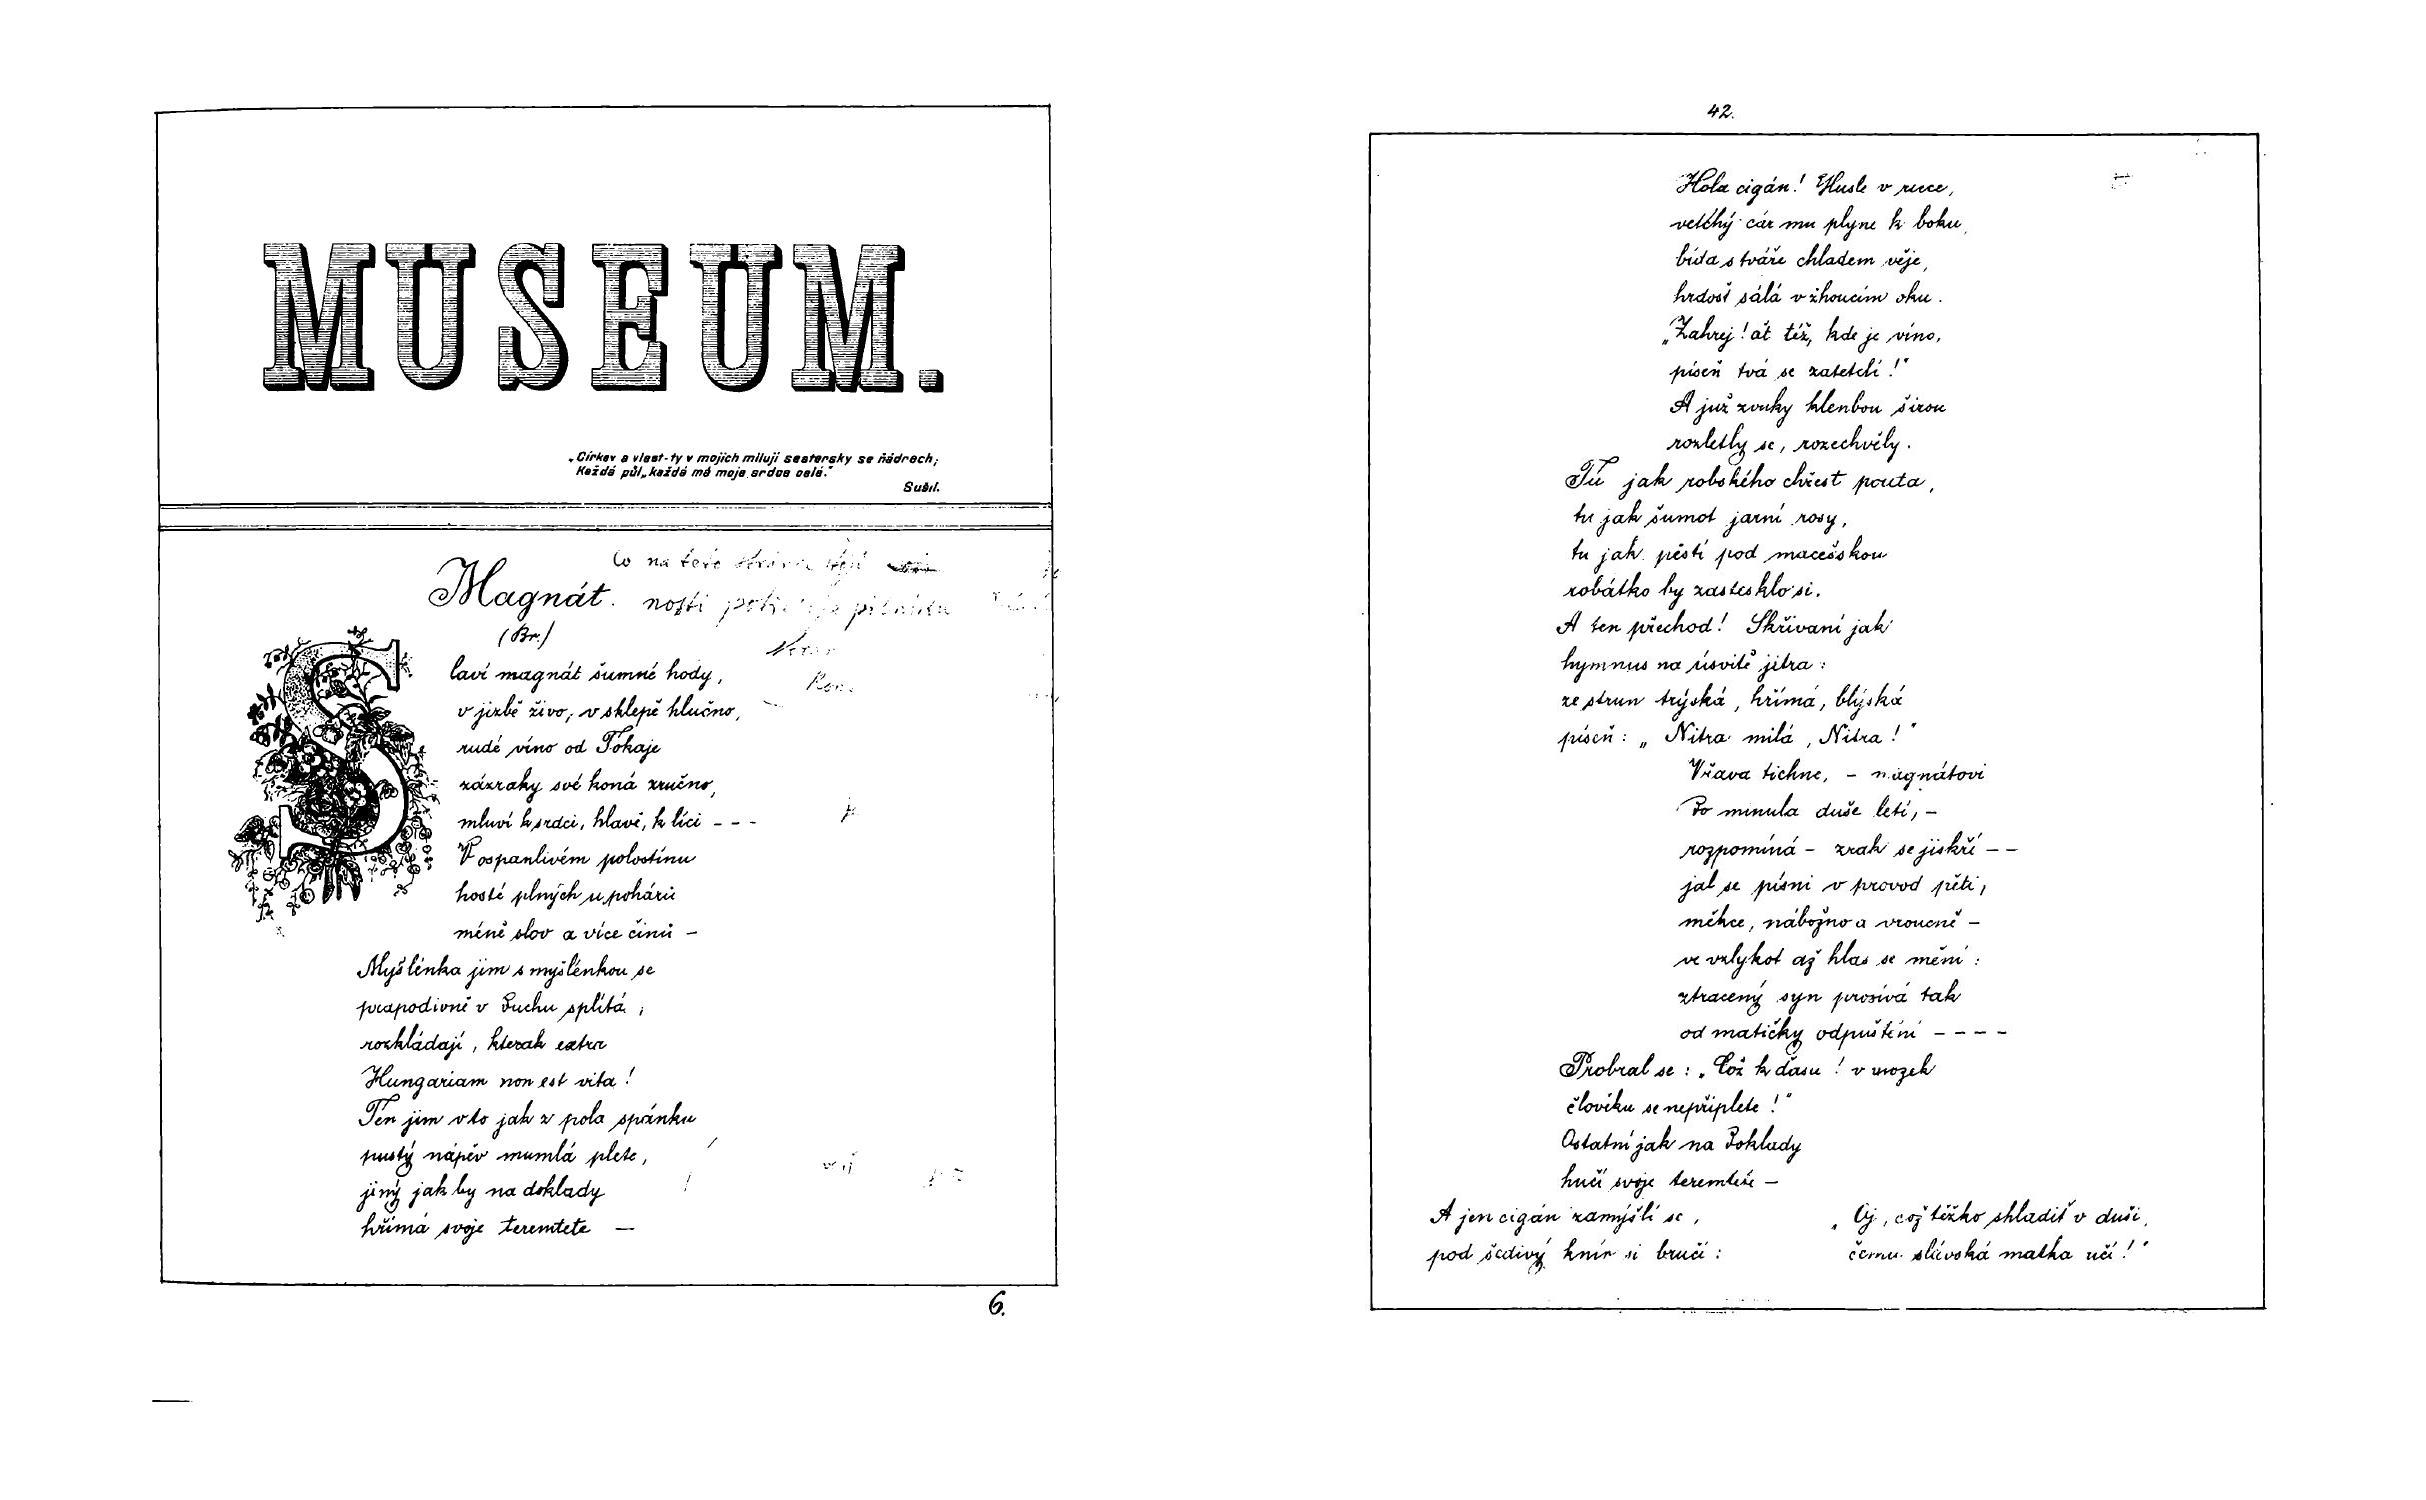 MUSEUM.
„Církev a vlast-ty v mojich miluji sestersky se ňádrech;
Každá půl, každá má moje srdce celé."
Sušil.
Co na této
Magnát.
(Br.)
Slaví magnát šumné hody,
v jizbě živo, v sklepě hlučno,
rudé víno od Tokaje
zázraky své koná zručno,
mluví k srdci, hlavě, k líci - - -
V ospanlivém polostínu
hosté plných u pohárů
méně slov a více činů –
Myšlénka jim s myšlénkou se
prapodivně v duchu splítá,
rozkládají, kterak extra
Hungariam non est vita!
Ten jim v to jak z pola spánku
pustý nápěv mumlá plete,
jiný jak by na doklady
hřímá svoje teremtete —
6.
42.
Hola cigán! Husle v ruce,
vetchý cár mu plyne k boku,
bída s tváře chladem věje,
hrdosť sálá v žhoucím oku.
„Zahrej! ať též, kde je víno,
píseň tvá se zatetelí!"
A již zvuky hlenbou širou
rozletly se, rozechvěly.
Tu jak robského chřest pouta,
tu jak šumot jarní rosy,
tu jak pěstí pod macešskou
robátko by zastesklo si.
A ten přechod! Skřivaní jak
hymnus na úsvitě jitra:
ze strun trýská, hřímá, blýská
píseň: „Nitra milá, Nitra!"
Vřava tichne, – magnátovi
do minula duše letí, –
rozpomíná – zrak se jiskří – –
jal se písni v provod pěti,
měkce, nábožno a vroucně –
ve vzlykot až hlas se mění:
ztracený syn prosívá tak
od matičky odpuštění – – – –
Probral se: „Což k ďasu! v mozek
člověku se nepřiplete!"
Ostatní jak na doklady
hučí svoje teremtete –
A jen cigán zamýšlí se,
pod šedivý knír si bručí:
„Oj, což těžko shladiť v duši,
čemu slávská matka učí!"